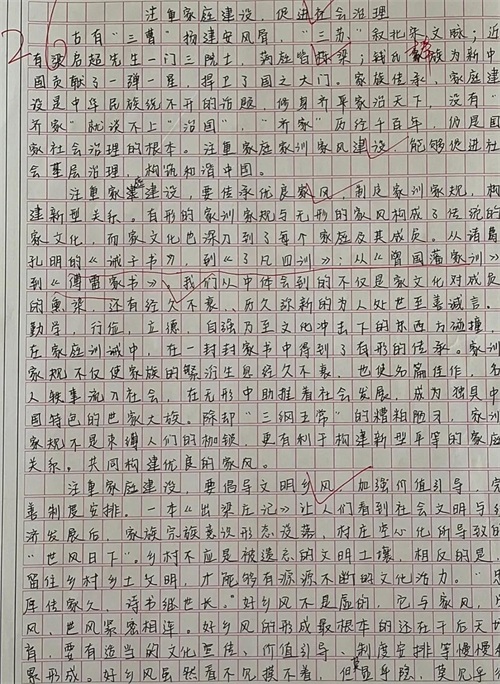 注重家庭建设，促进社会治理
26
古有“三曹”扬建安风骨，“三苏”叙北宋文脉；近
有梁启超先生一门三院士，满庭皆栋梁；钱氏家族为新中
国贡献了一弹一星，捍卫了国之大门。家族传承，家庭建
设是中华民族绕不开的话题，修身齐家治天下，没有“
齐家”就谈不上“治国”，“齐家”历经千百年，仍是国
家社会治理的根本。注重家庭家训家风建设，能够促进社
会基层治理，构筑和谐中国。
注重家庭建设，要传承优良家风，制定家训家规，构
建新型关系。有形的家训家规与无形的家风构成了传统的
家文化，而家文化也深入到了每个家庭及其成员。从诸葛
孔明的《诫子书》，到《了凡四训》；从《曾国藩家训》
到《傅雷家书》，我们从中体会到的不仅是家文化对成员
的熏染，还有经久不衰、历久弥新的为人处世至善诚言。
勤学，行俭，立德，自强乃至文化冲击下的东西方碰撞，
在家庭训诫中，在一封封家书中得到了有形的传承。家训
家规不仅使家族的繁衍生息经久不衰，也使名篇佳作，名
人轶事流入社会，在无形中助推着社会发展，成为独具中
国特色的世家大族。除却“三纲五常”的糟粕陋习，家训
家规不是束缚人们的枷锁，更有利于构建新型平等的家庭
关系。共同构建优良的家风。
注重家庭建设，要倡导文明乡风，加强价值引导，完
善制度安排。一本《出梁庄记》让人们看到社会文明与经
济发展后，家族宗族意识形态没落，村庄空心化所导致的
“世风日下”。乡村不应是被遗忘的文明土壤，相反的是
留住乡村乡土文明，才能够有源源不断的文化活力。“忠
厚传家久，诗书继世长。”好乡风不是虚的，它与家风，
风，世风紧密相连。好乡风的形成最根本的还在于后天
育，要有适当的文化宣传、价值引导、制度安排等慢慢
家形成。好乡风虽然看不见摸不着，但